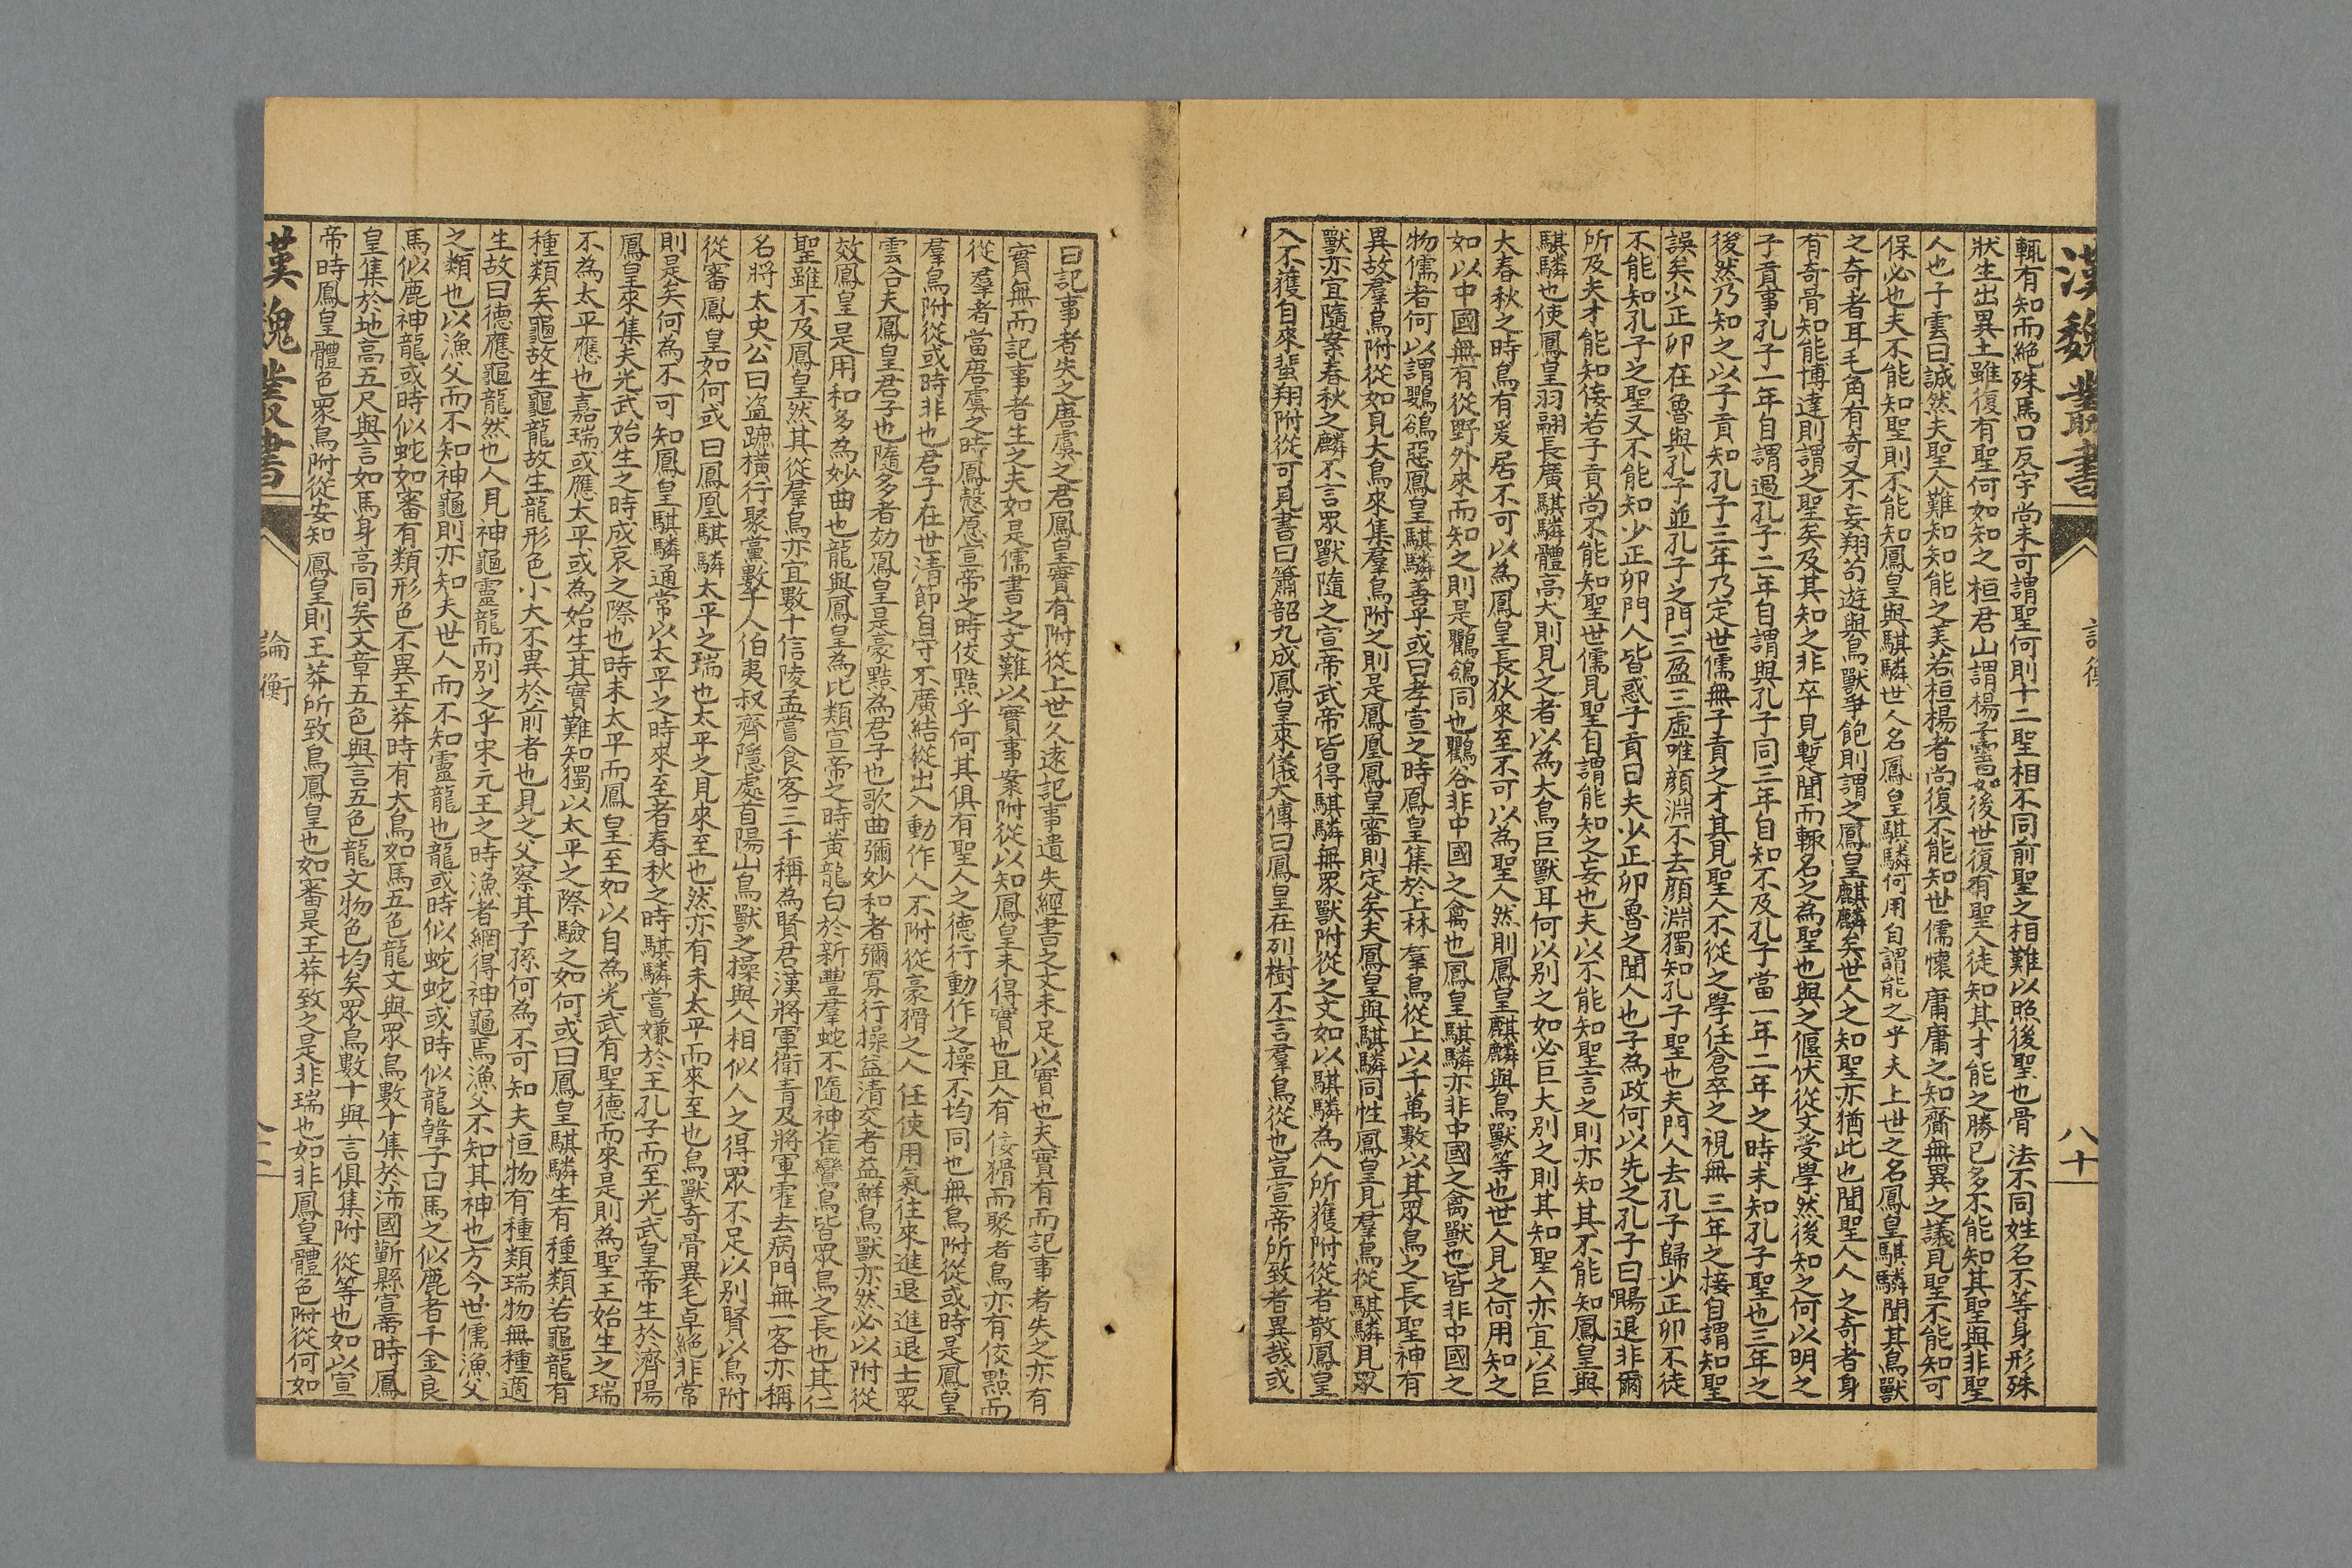 漢魏叢書 論衡 八十
輒有知而絕殊馬口反宇尚未可謂聖何則十二聖相不同前聖之相難以照後聖也骨法不同姓名不等身形殊
狀生出異土雖復有聖何如知之桓君山謂楊子雲曰如後世復有聖人徒知其才能之勝已多不能知其聖與非聖
人也子雲曰誠然夫聖人難知知能之美若桓楊者尚復不能知世儒懷庸庸之知齎無異之議見聖不能知可
保必也夫不能知聖則不能知鳳皇與騏驎世人名鳳皇騏驎何用自謂能之乎夫上世之名鳳皇騏驎聞其鳥獸
之奇者耳毛角有奇又不妄翔苟遊與鳥獸爭飽則謂之鳳皇麒麟矣世人之知聖亦猶此也聞聖人人之奇者身
有奇骨知能博達則謂之聖矣及其知之非卒見暫聞而輒名之為聖也與之偃伏從文受學然後知之何以明之
子貢事孔子一年自謂過孔子二年自謂與孔子同三年自知不及孔子當一年二年之時未知孔子聖也三年之
後然乃知之以子貢知孔子三年乃定世儒無子貢之才其見聖人不從之學任倉卒之視無三年之接自謂知聖
誤矣少正卯在魯與孔子並孔子之門三盈三虛唯顏淵不去顏淵獨知孔子聖也夫門人去孔子歸少正卯不徒
不能知孔子之聖又不能知少正卯門人皆惑子貢曰夫少正卯魯之聞人也子為政何以先之孔子曰賜退非爾
所及夫才能知佞若子貢尚不能知聖世儒見聖自謂能知之妄也夫以不能知聖言之則亦知其不能知鳳皇與
騏驎也使鳳皇羽翮長廣騏驎體高大則見之者以為大鳥巨獸耳何以別之如必巨大別之則其知聖人亦宜以巨
大春秋之時鳥有爰居不可以為鳳皇長狄來至不可以為聖人然則鳳皇麒麟與鳥獸等也世人見之何用知之
如以中國無有從野外來而知之則是鸜鵒同也鸜谷非中國之禽也鳳皇騏驎亦非中國之禽獸也皆非中國之
物儒者何以謂鸜鵒惡鳳皇騏驎善乎或曰孝宣之時鳳皇集於上林羣鳥從上以千萬數以其眾鳥之長聖神有
異故羣鳥附從如見大鳥來集羣鳥附之則是鳳凰鳳皇審則定矣夫鳳皇與騏驎同性鳳皇見羣鳥從騏驎見眾
獸亦宜隨案春秋之麟不言眾獸隨之宣帝武帝皆得騏驎無眾獸附從之文如以騏驎為人所獲附從者散鳳皇
人不獲自來蜚翔附從可見書曰簫韶九成鳳皇來儀大傳曰鳳皇在列樹不言羣鳥從也豈宣帝所致者異哉或
曰記事者失之唐虞之君鳳皇實有附從上世久遠記事遺失經書之文未足以實也夫實有而記事者失之亦有
實無而記事者生之夫如是儒書之文難以實事案附從以知鳳皇未得實也且人有佞猾而聚者鳥亦有佼黠而
從羣者當唐虞之時鳳愨愿宣帝之時佼黠乎何其俱有聖人之德行動作之操不均同也無鳥附從或時是鳳皇
羣鳥附從或時非也君子在世清節自守不廣結從出入動作人不附從豪猾之人任使用氣往來進退進退士眾
雲合夫鳳皇君子也隨多者効鳳皇是豪黠為君子也歌曲彌妙和者彌寡行操益清交者益鮮鳥獸亦然必以附從
效鳳皇是用和多為妙曲也龍與鳳皇為比類宣帝之時黃龍白於新豐羣蛇不隨神雀鸞鳥皆眾鳥之長也其仁
聖雖不及鳳皇然其從羣鳥亦宜數十信陵孟嘗食客三千稱為賢君漢將軍衛青及將軍霍去病門無一客亦稱
名將太史公曰盜蹠橫行聚黨數千人伯夷叔齊隱處首陽山鳥獸之操與人相似人之得眾不足以別賢以鳥附
從審鳳皇如何或曰鳳凰騏驎太平之瑞也太平之見來至也然亦有未太平而來至也鳥獸奇骨異毛卓絕非常
則是矣何為不可知鳳皇騏驎通常以太平之時來至者春秋之時騏驎嘗嫌於王孔子而至光武皇帝生於濟陽
鳳皇來集夫光武始生之時成哀之際也時未太平而鳳皇至如以自為光武有聖德而來是則為聖王始生之瑞
不為太平應也嘉瑞或應太平或為始生其實難知獨以太平之際驗之如何或曰鳳皇騏驎生有種類若龜龍有
種類矣龜故生龜龍故生龍形色小大不異於前者也見之父察其子孫何為不可知夫恒物有種類瑞物無種適
生故曰德應龜龍然也人見神龜靈龍而別之乎宋元王之時漁者網得神龜焉漁父不知其神也方今世儒漁父
之類也以漁父而不知神龜則亦知夫世人而不知靈龍也龍或時似蛇蛇或時似龍韓子曰馬之似鹿者千金良
馬似鹿神龍或時似蛇如審有類形色不異王莽時有大鳥如馬五色龍文與眾鳥數十集於沛國蘄縣宣帝時鳳
皇集於地高五尺與言如馬身高同矣文章五色與言五色龍文物色均矣眾鳥數十與言俱集附從等也如以宣
帝時鳳皇體色眾鳥附從安知鳳皇則王莽所致鳥鳳皇也如審是王莽致之是非瑞也如非鳳皇體色附從何如
漢魏叢書 論衡